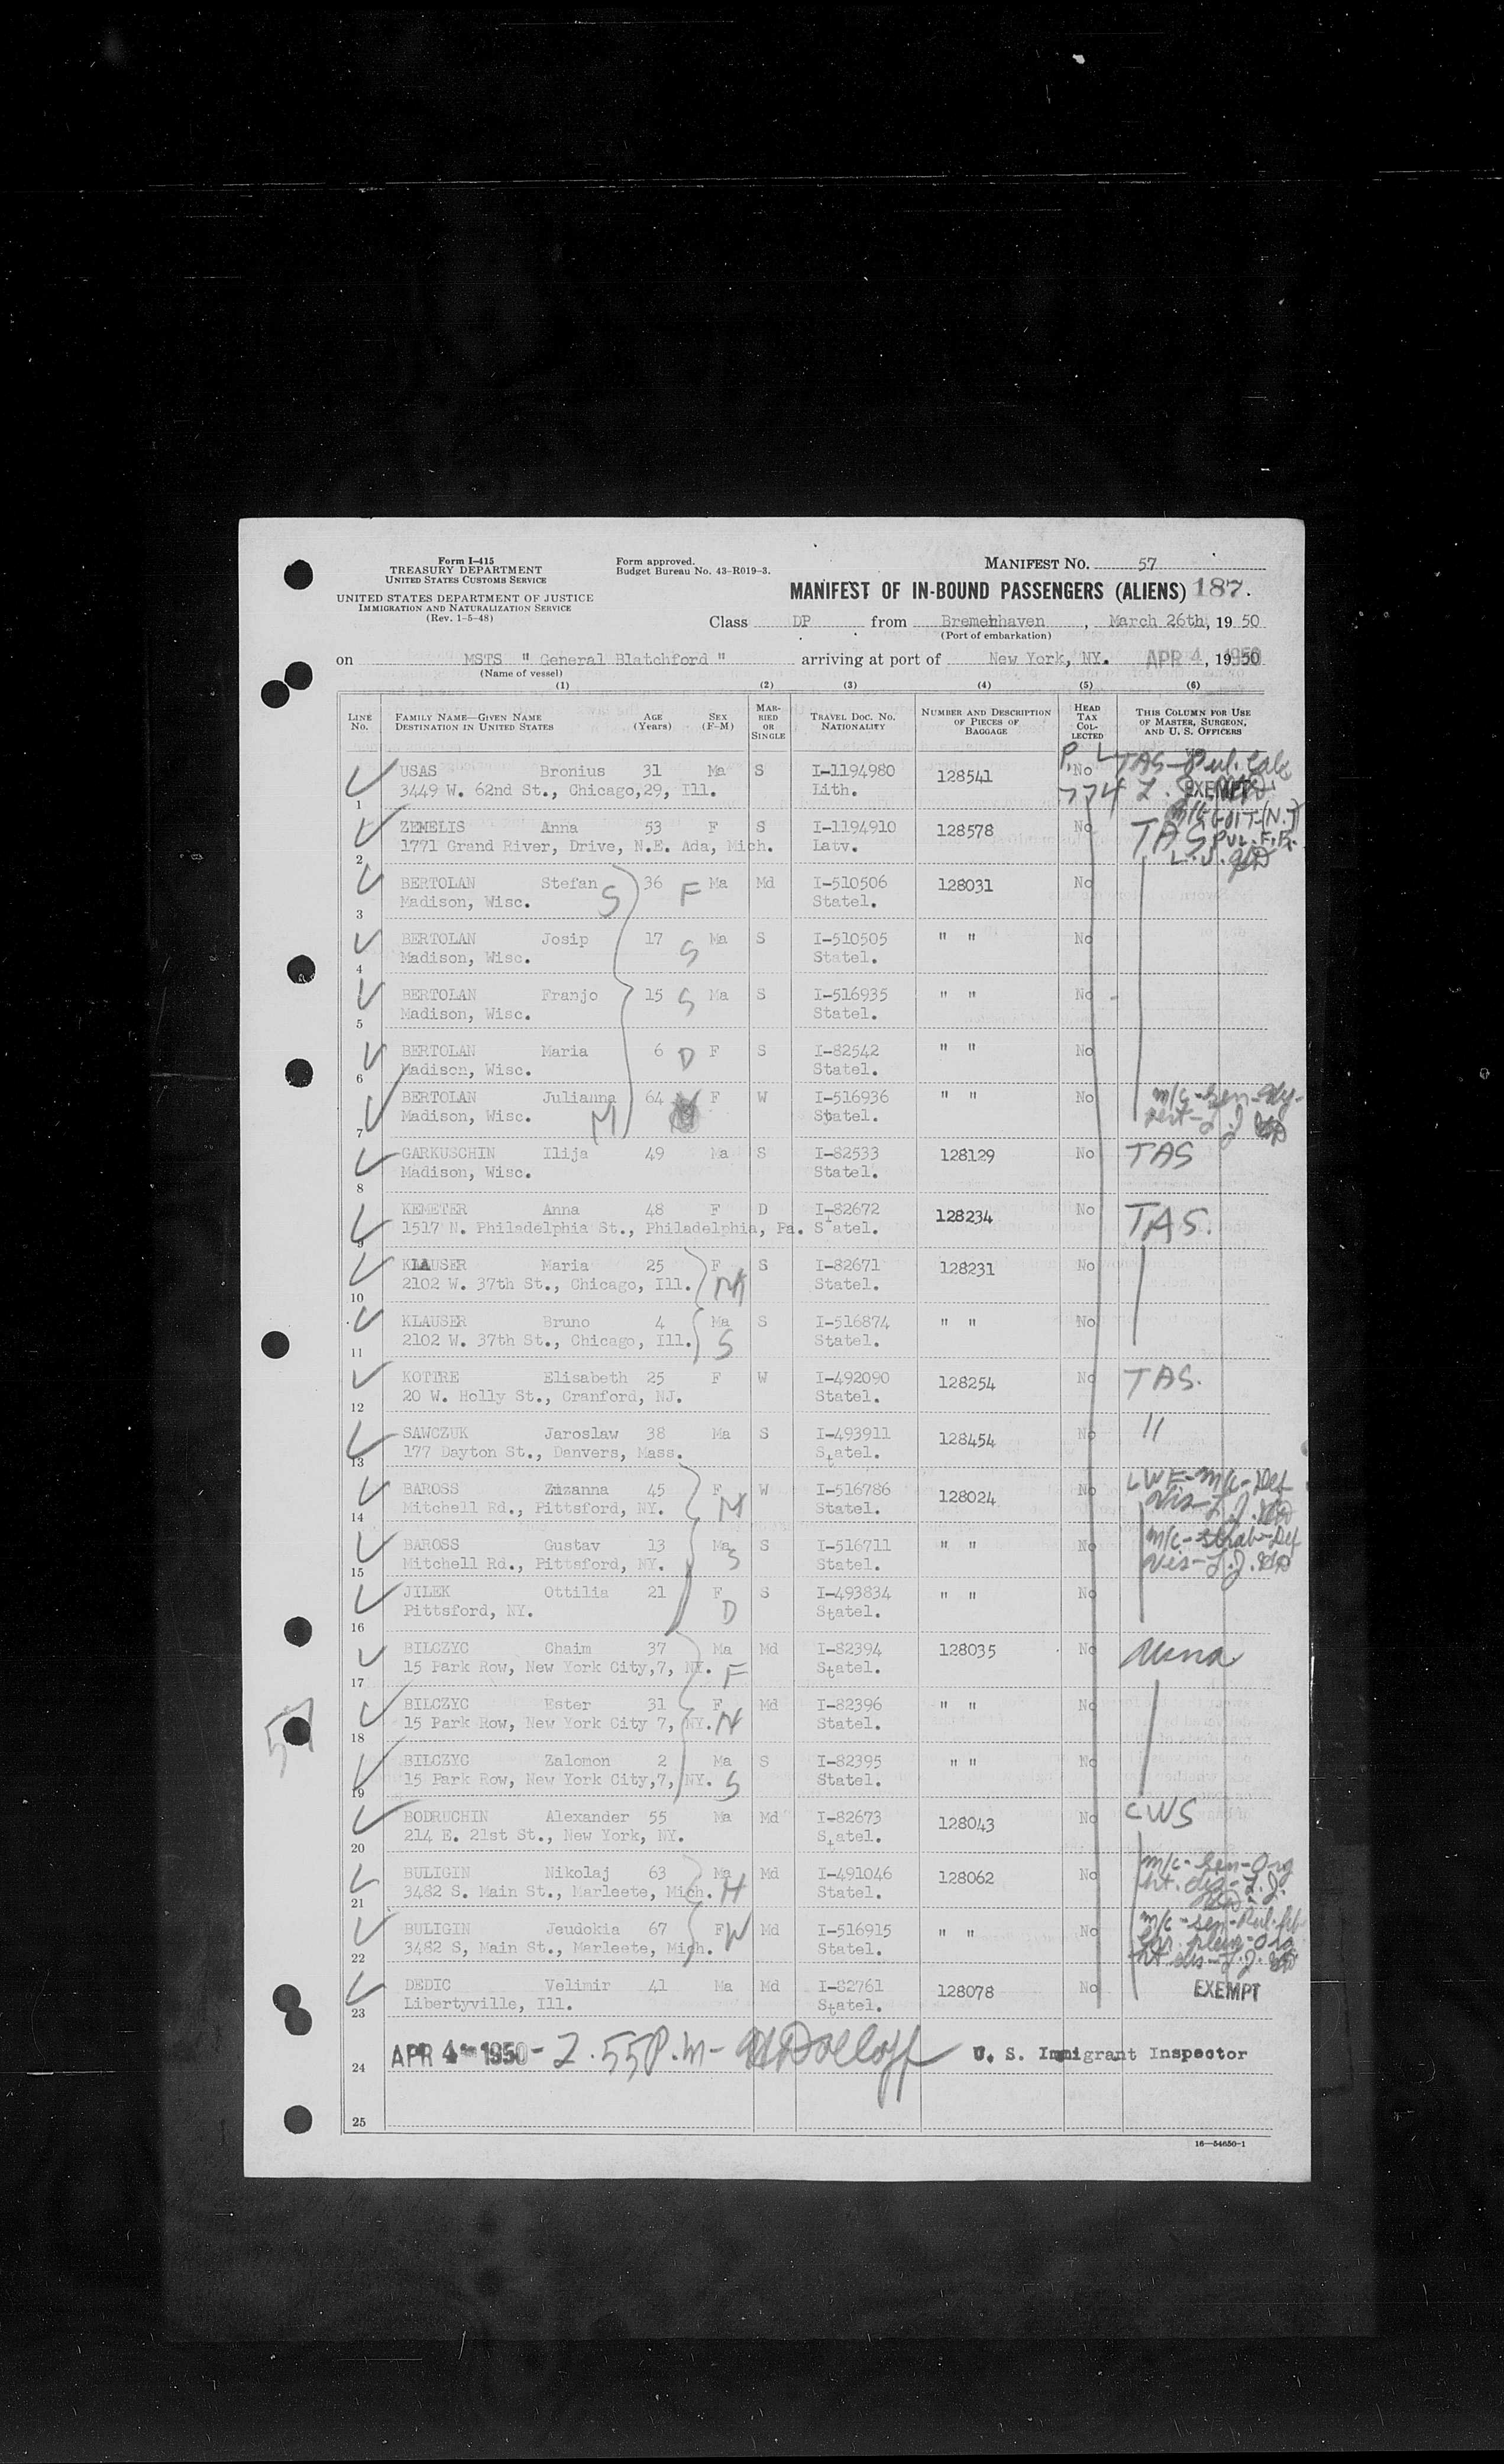 Form I-415
TREASURY DEPARTMENT
UNITED STATES CUSTOMS SERVICE
UNITED STATES DEPARTMENT OF JUSTICE
IMMIGRATION AND NATURALIZATION SERVICE
(Rev. 1-5-48)
Form approved.
Budget Bureau No. 43-R019-3.
MANIFEST No. 57
MANIFEST OF IN-BOUND PASSENGERS (ALIENS) 187.
Class DP from Bremenhaven, March 26th, 1950
(Port of embarkation)
on MSTS " General Blatchford " arriving at port of New York, NY. APR 4 1950, 1950
(Name of vessel)
(1) (2) (3) (4) (5) (6)
LINE No. FAMILY NAME—GIVEN NAME DESTINATION IN UNITED STATES AGE (Years) SEX (F-M) MARRIED OR SINGLE TRAVEL DOC. No. NATIONALITY NUMBER AND DESCRIPTION OF PIECES OF BAGGAGE HEAD TAX COLLECTED THIS COLUMN FOR USE OF MASTER, SURGEON, AND U. S. OFFICERS
1 USAS Bronius 31 Ma S I-1194980 128541 No TAS-Pul.
3449 W. 62nd St., Chicago,29, Ill. Lith. 774 EXEMPT
2 ZEMELIS Anna 53 F S I-1194910 128578 No TAS
1771 Grand River, Drive, N.E. Ada, Mich. Latv.
3 BERTOLAN Stefan S 36 F Ma Md I-510506 128031 No
Madison, Wisc. Statel.
4 BERTOLAN Josip 17 S Ma S I-510505 " " No
Madison, Wisc. Statel.
5 BERTOLAN Franjo 15 S Ma S I-516935 " " No
Madison, Wisc. Statel.
6 BERTOLAN Maria 6 D F S I-82542 " " No
Madison, Wisc. Statel.
7 BERTOLAN Julianna 64 F W I-516936 " " No m/c-sen-
Madison, Wisc. M Statel.
8 GARKUSCHIN Ilija 49 Ma S I-82533 128129 No TAS
Madison, Wisc. Statel.
9 KEMETER Anna 48 F D I-82672 128234 No TAS.
1517 N. Philadelphia St., Philadelphia, Pa. Statel.
10 KLAUSER Maria 25 F S I-82671 128231 No
2102 W. 37th St., Chicago, Ill. M Statel.
11 KLAUSER Bruno 4 Ma S I-516874 " " No
2102 W. 37th St., Chicago, Ill. S Statel.
12 KOTIRE Elisabeth 25 F W I-492090 128254 No TAS.
20 W. Holly St., Cranford, NJ. Statel.
13 SAWCZUK Jaroslaw 38 Ma S I-493911 128454 No "
177 Dayton St., Danvers, Mass. Statel.
14 BAROSS Zuzanna 45 F W I-516786 128024 No LWF-m/c-Def
Mitchell Rd., Pittsford, NY. M Statel. Vis-L.J.
15 BAROSS Gustav 13 Ma S I-516711 " " No m/c-strab-Def
Mitchell Rd., Pittsford, NY. S Statel. Vis-L.J.
16 JILEK Ottilia 21 F S I-493834 " " No
Pittsford, NY. D Statel.
17 BILCZYC Chaim 37 Ma Md I-82394 128035 No
15 Park Row, New York City,7, NY. F Statel.
18 BILCZYC Ester 31 F Md I-82396 " " No
15 Park Row, New York City 7, NY. Statel.
19 BILCZYC Zalomon 2 Ma S I-82395 " " No
15 Park Row, New York City,7, NY. S Statel.
57
20 BODRUCHIN Alexander 55 Ma Md I-82673 128043 No CWS
214 E. 21st St., New York, NY. Statel.
21 BULIGIN Nikolaj 63 Ma Md I-491046 128062 No m/c-sen-Org
3482 S. Main St., Marleete, Mich. H Statel. ht. dis-L.J.
22 BULIGIN Jeudokia 67 F W Md I-516915 " " No m/c-sen-
3482 S, Main St., Marleete, Mich. Statel. ht dis-L.J.
23 DEDIC Velimir 41 Ma Md I-82761 128078 No EXEMPT
Libertyville, Ill. Statel.
24 APR 4 1950 - 2.55 P.m - U. S. Immigrant Inspector
25
16—54650-1